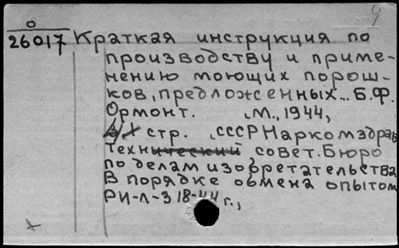 4
О
26017 Краткая инструкция по
производству и приме-
нению моющих порош-
ков, предложенных... Б.Ф.
Ормонт. М., 1944,
стр. СССР Наркомздрав
Технический совет. Бюро
по делам изобретательства
В порядке обмена опытом
РИ-Л-З 18-44 г.,